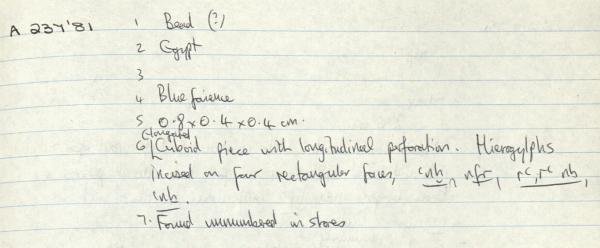 A. 237'81
1 Bead (?)
2 Egypt
3
4 Blue faience
5 0.8 x 0.4 x 0.4 cm.
Elongated
6 Cuboid piece with longitudinal perforation. Hieroglyphs
incised on four rectangular faces, cnh, nfr, rc, rc nb,
cnh.
7. Found unnumbered in stores